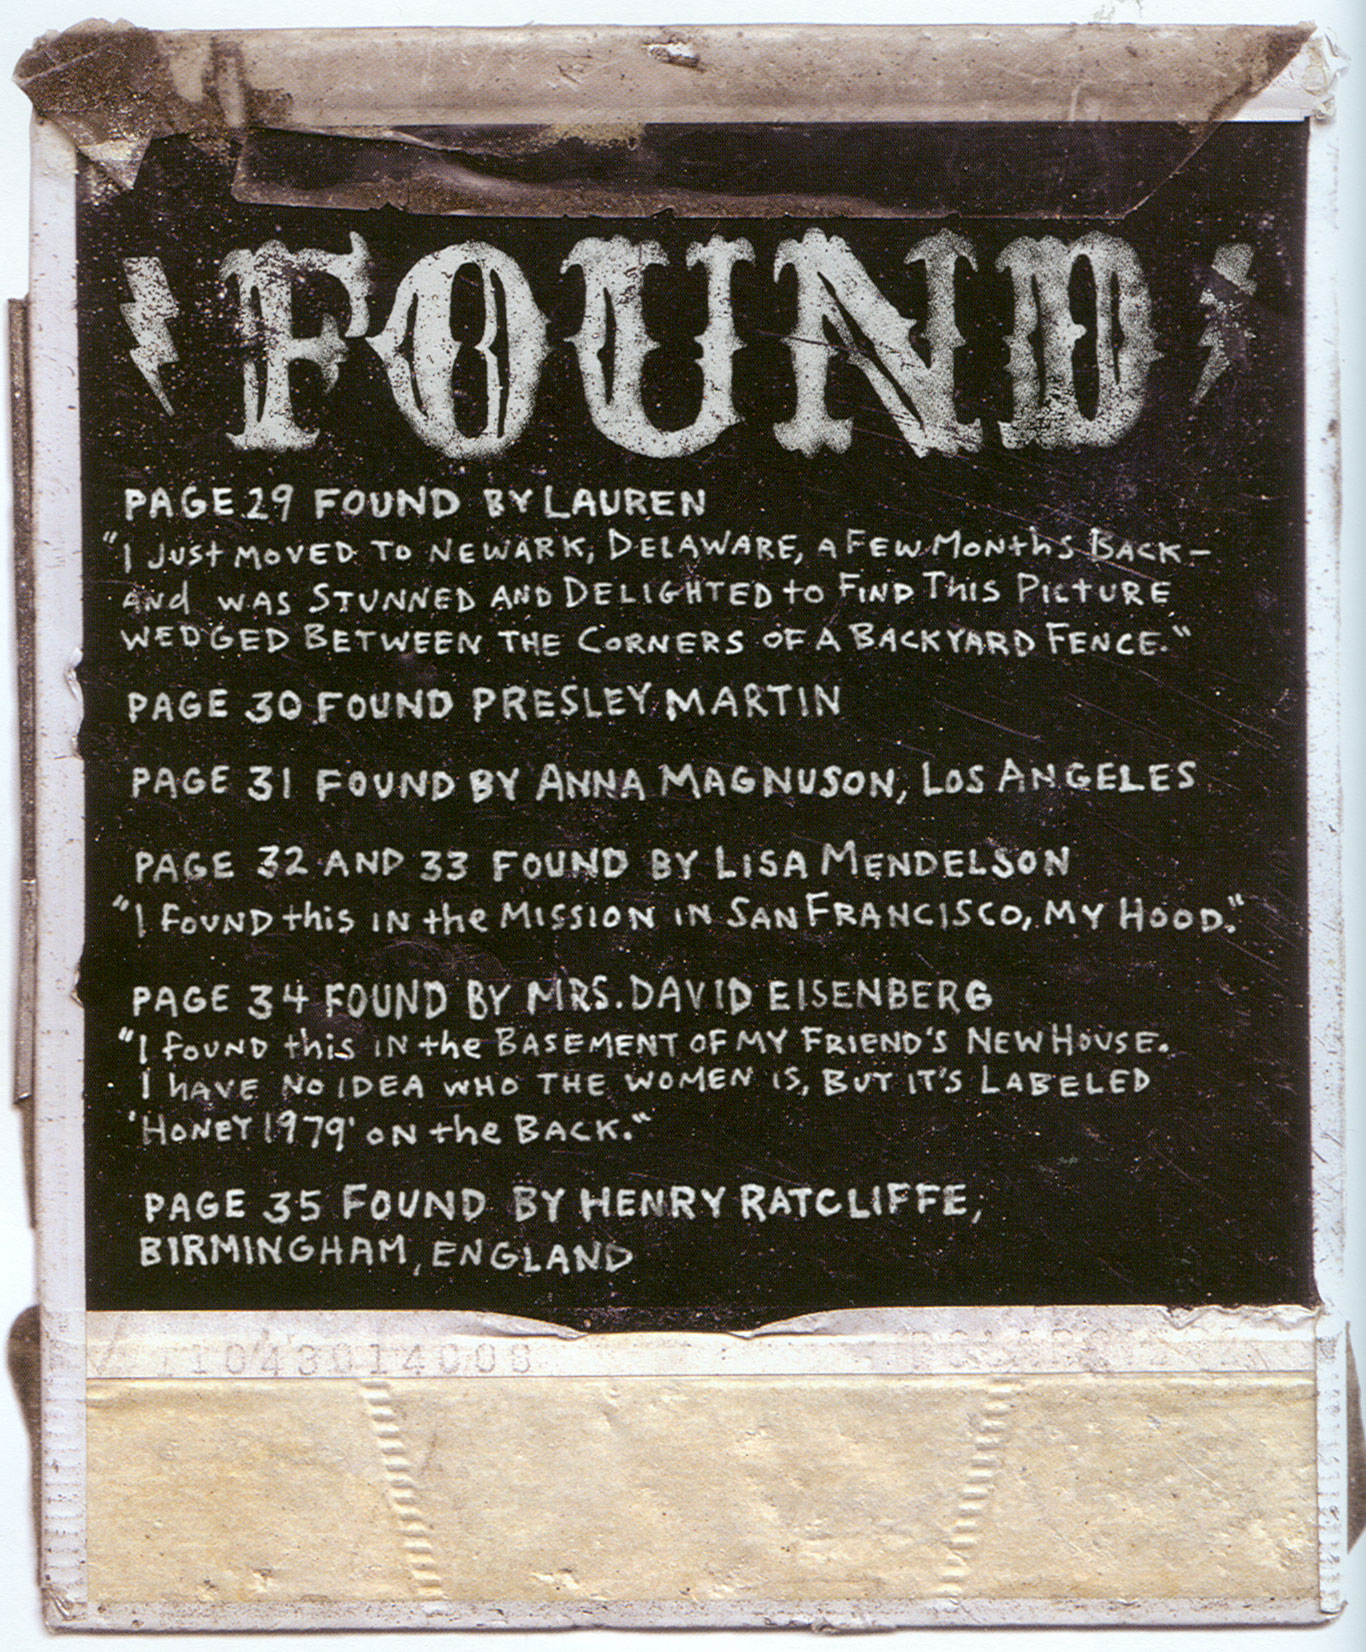 FOUND
PAGE 29 FOUND BY LAUREN
"I JUST MOVED TO NEWARK, DELAWARE, A FEW MONTHS BACK-
AND WAS STUNNED AND DELIGHTED TO FIND THIS PICTURE
WEDGED BETWEEN THE CORNERS OF A BACKYARD FENCE."
PAGE 30 FOUND PRESLEY MARTIN
PAGE 31 FOUND BY ANNA MAGNUSON, LOS ANGELES
PAGE 32 AND 33 FOUND BY LISA MENDELSON
"I FOUND this IN the MISSION IN SAN FRANCISCO, MY HOOD."
PAGE 34 FOUND BY MRS. DAVID EISENBERG
"I found this IN the BASEMENT OF MY FRIEND'S NEW HOUSE.
I HAVE NO IDEA WHO THE WOMEN IS, BUT IT'S LABELED
'HONEY 1979' ON the BACK."
PAGE 35 FOUND BY HENRY RATCLIFFE,
BIRMINGHAM, ENGLAND